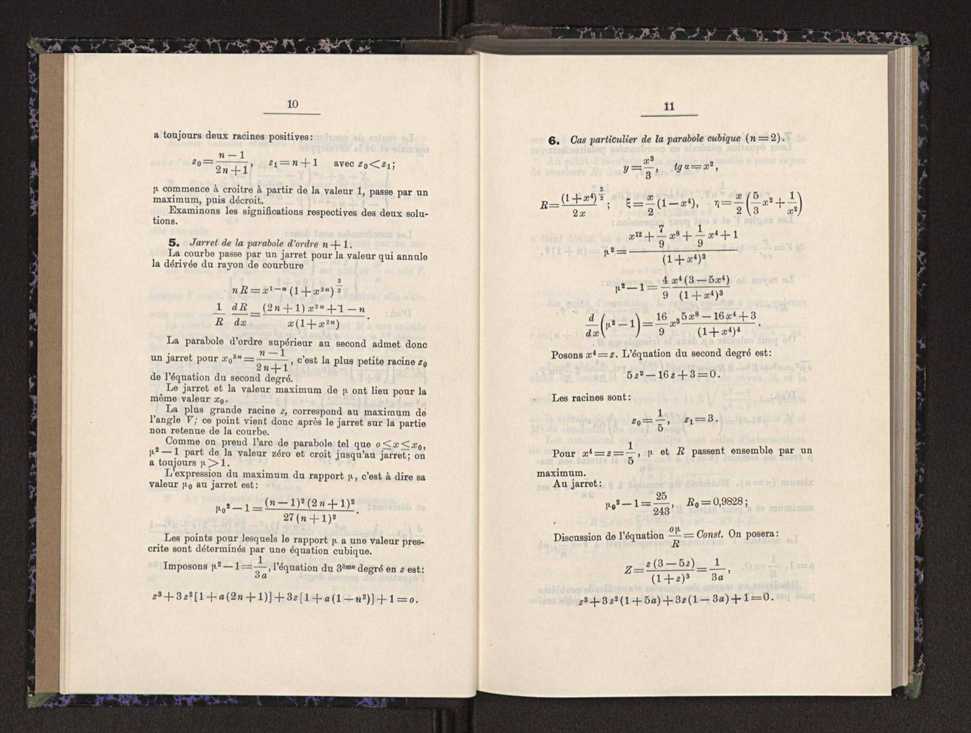 10
a toujours deux racines positives:
z₀ = (n − 1)/(2n + 1), z₁ = n + 1 avec z₀ < z₁;
μ commence à croitre à partir de la valeur 1, passe par un
maximum, puis décroit.
Examinons les significations respectives des deux solu-
tions.
5. Jarret de la parabole d'ordre n + 1.
La courbe passe par un jarret pour la valeur qui annule
la dérivée du rayon de courbure
nR = x¹⁻ⁿ (1 + x²ⁿ)^(3/2)
(1/R) (dR/dx) = ((2n + 1) x²ⁿ + 1 − n)/(x (1 + x²ⁿ)).
La parabole d'ordre supérieur au second admet donc
un jarret pour x₀²ⁿ = (n − 1)/(2n + 1), c'est la plus petite racine z₀
de l'équation du second degré.
Le jarret et la valeur maximum de μ ont lieu pour la
même valeur x₀.
La plus grande racine z, correspond au maximum de
l'angle V; ce point vient donc après le jarret sur la partie
non retenue de la courbe.
Comme on prend l'arc de parabole tel que o ≤ x ≤ x₀,
μ² — 1 part de la valeur zéro et croit jusqu'au jarret; on
a toujours μ > 1.
L'expression du maximum du rapport μ, c'est à dire sa
valeur μ₀ au jarret est:
μ₀² − 1 = ((n − 1)² (2n + 1)²)/(27 (n + 1)²).
Les points pour lesquels le rapport μ a une valeur pres-
crite sont déterminés par une équation cubique.
Imposons μ² − 1 = 1/(3a), l'équation du 3ème degré en z est:
z³ + 3z² [1 + a (2n + 1)] + 3z [1 + a (1 − n²)] + 1 = o.
11
6. Cas particulier de la parabole cubique (n = 2).
y = x³/3, tg α = x²,
R = (1 + x⁴)^(3/2)/(2x); ξ = (x/2)(1 − x⁴), η = (x/2)((5/3)x² + 1/x²)
μ² = (x¹² + (7/9)x⁸ + (1/9)x⁴ + 1)/((1 + x⁴)³)
μ² − 1 = (4/9) (x⁴ (3 − 5x⁴))/((1 + x⁴)³)
(d/dx)(μ² − 1) = (16/9) x³ (5x⁸ − 16x⁴ + 3)/((1 + x⁴)⁴).
Posons x⁴ = z. L'équation du second degré est:
5z² − 16z + 3 = 0.
Les racines sont:
z₀ = 1/5, z₁ = 3.
Pour x⁴ = z = 1/5, μ et R passent ensemble par un
maximum.
Au jarret:
μ₀² − 1 = 25/243, R₀ = 0,9828;
Discussion de l'équation oμ/R = Const. On posera:
Z = (z (3 − 5z))/((1 + z)³) = 1/(3a),
z³ + 3z² (1 + 5a) + 3z (1 − 3a) + 1 = 0.